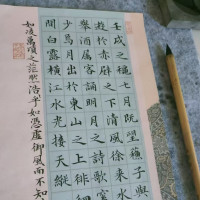 壬戌之秋七月既望蘇子與
遊於赤壁之下清風徐來水
舉酒屬客誦明月之詩歌窈
少焉月出於東山之上徘徊
間白露橫江水光接天縱
如凌萬頃之茫然浩乎如憑虛御風而不知